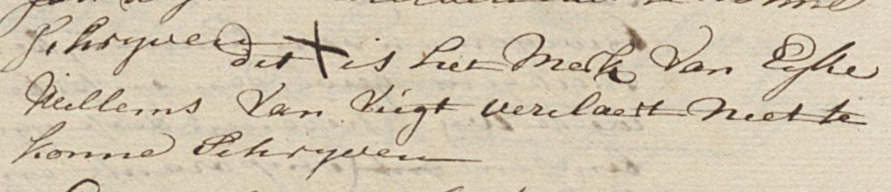 Schryven dit X is het Merk Van Eyke
Willems Van Vugt verclaert niet te
konne Schryven